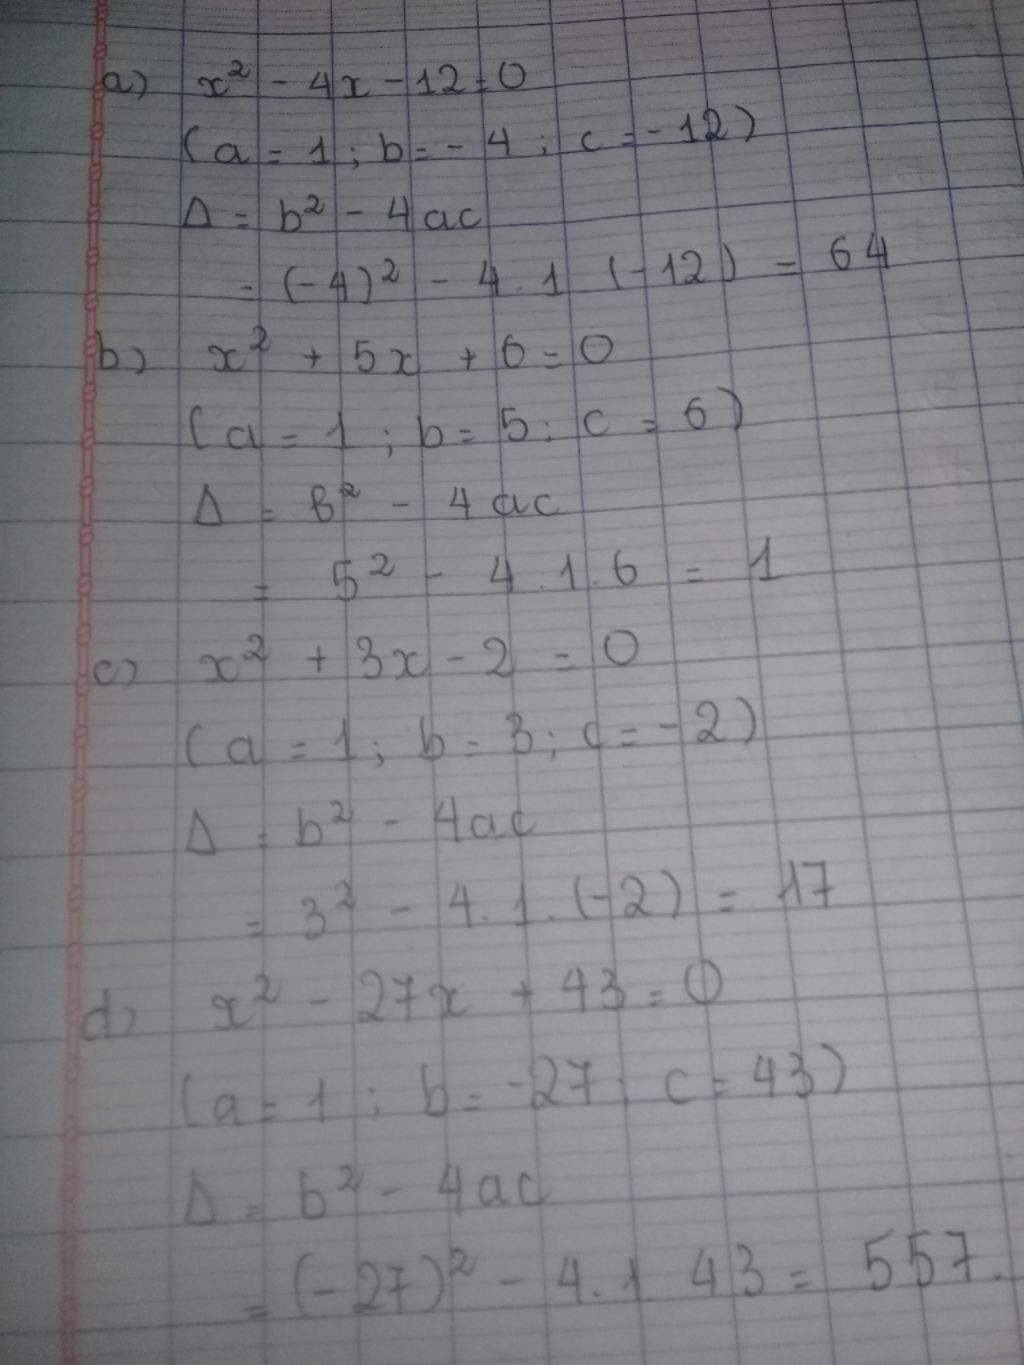 a) x² - 4x - 12 = 0
(a = 1 ; b = - 4 ; c = - 12)
Δ = b² - 4ac
= (-4)² - 4.1 (-12) = 64
b) x² + 5x + 6 = 0
(a = 1 ; b = 5 ; c = 6)
Δ = b² - 4ac
= 5² - 4.1.6 = 1
c) x² + 3x - 2 = 0
(a = 1 ; b = 3 ; c = -2)
Δ = b² - 4ac
= 3² - 4.1.(-2) = 17
d) x² - 27x + 43 = 0
(a = 1 ; b = -27 ; c = 43)
Δ = b² - 4ac
= (-27)² - 4.1 43 = 557.